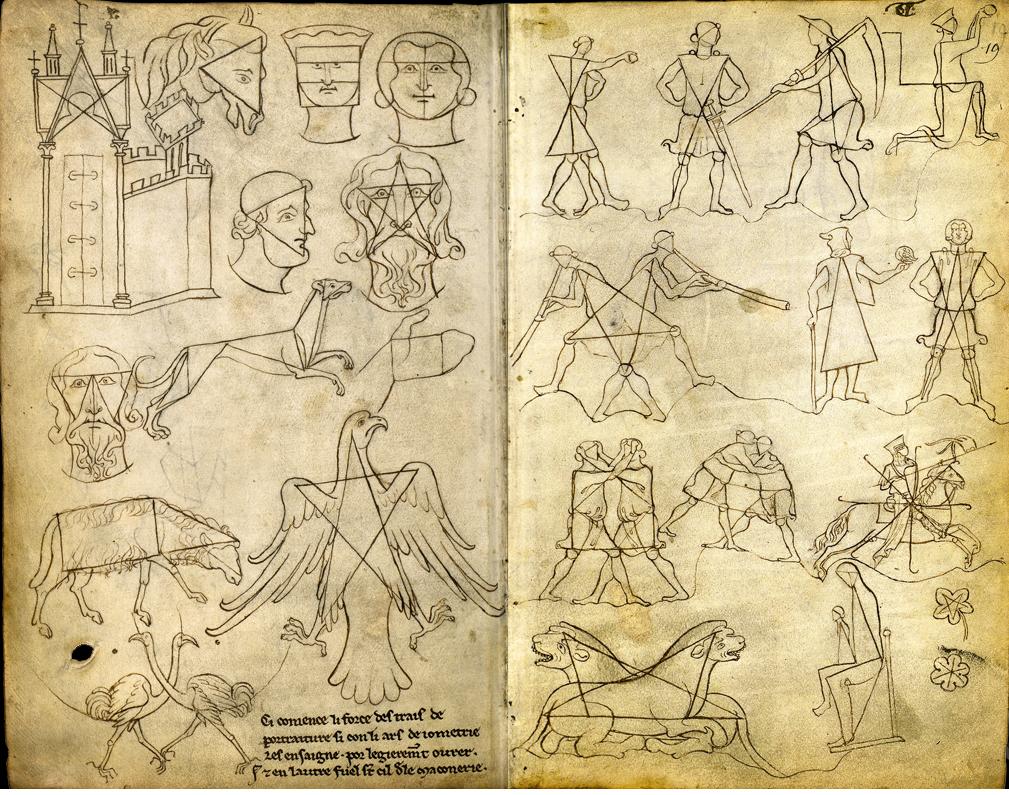 19
Ci comence li force des trais de
portraiture si con li ars de iometrie
les ensaigne · por legieremt ourer ·
⁊ en lautre fuel st cil dle maconerie ·